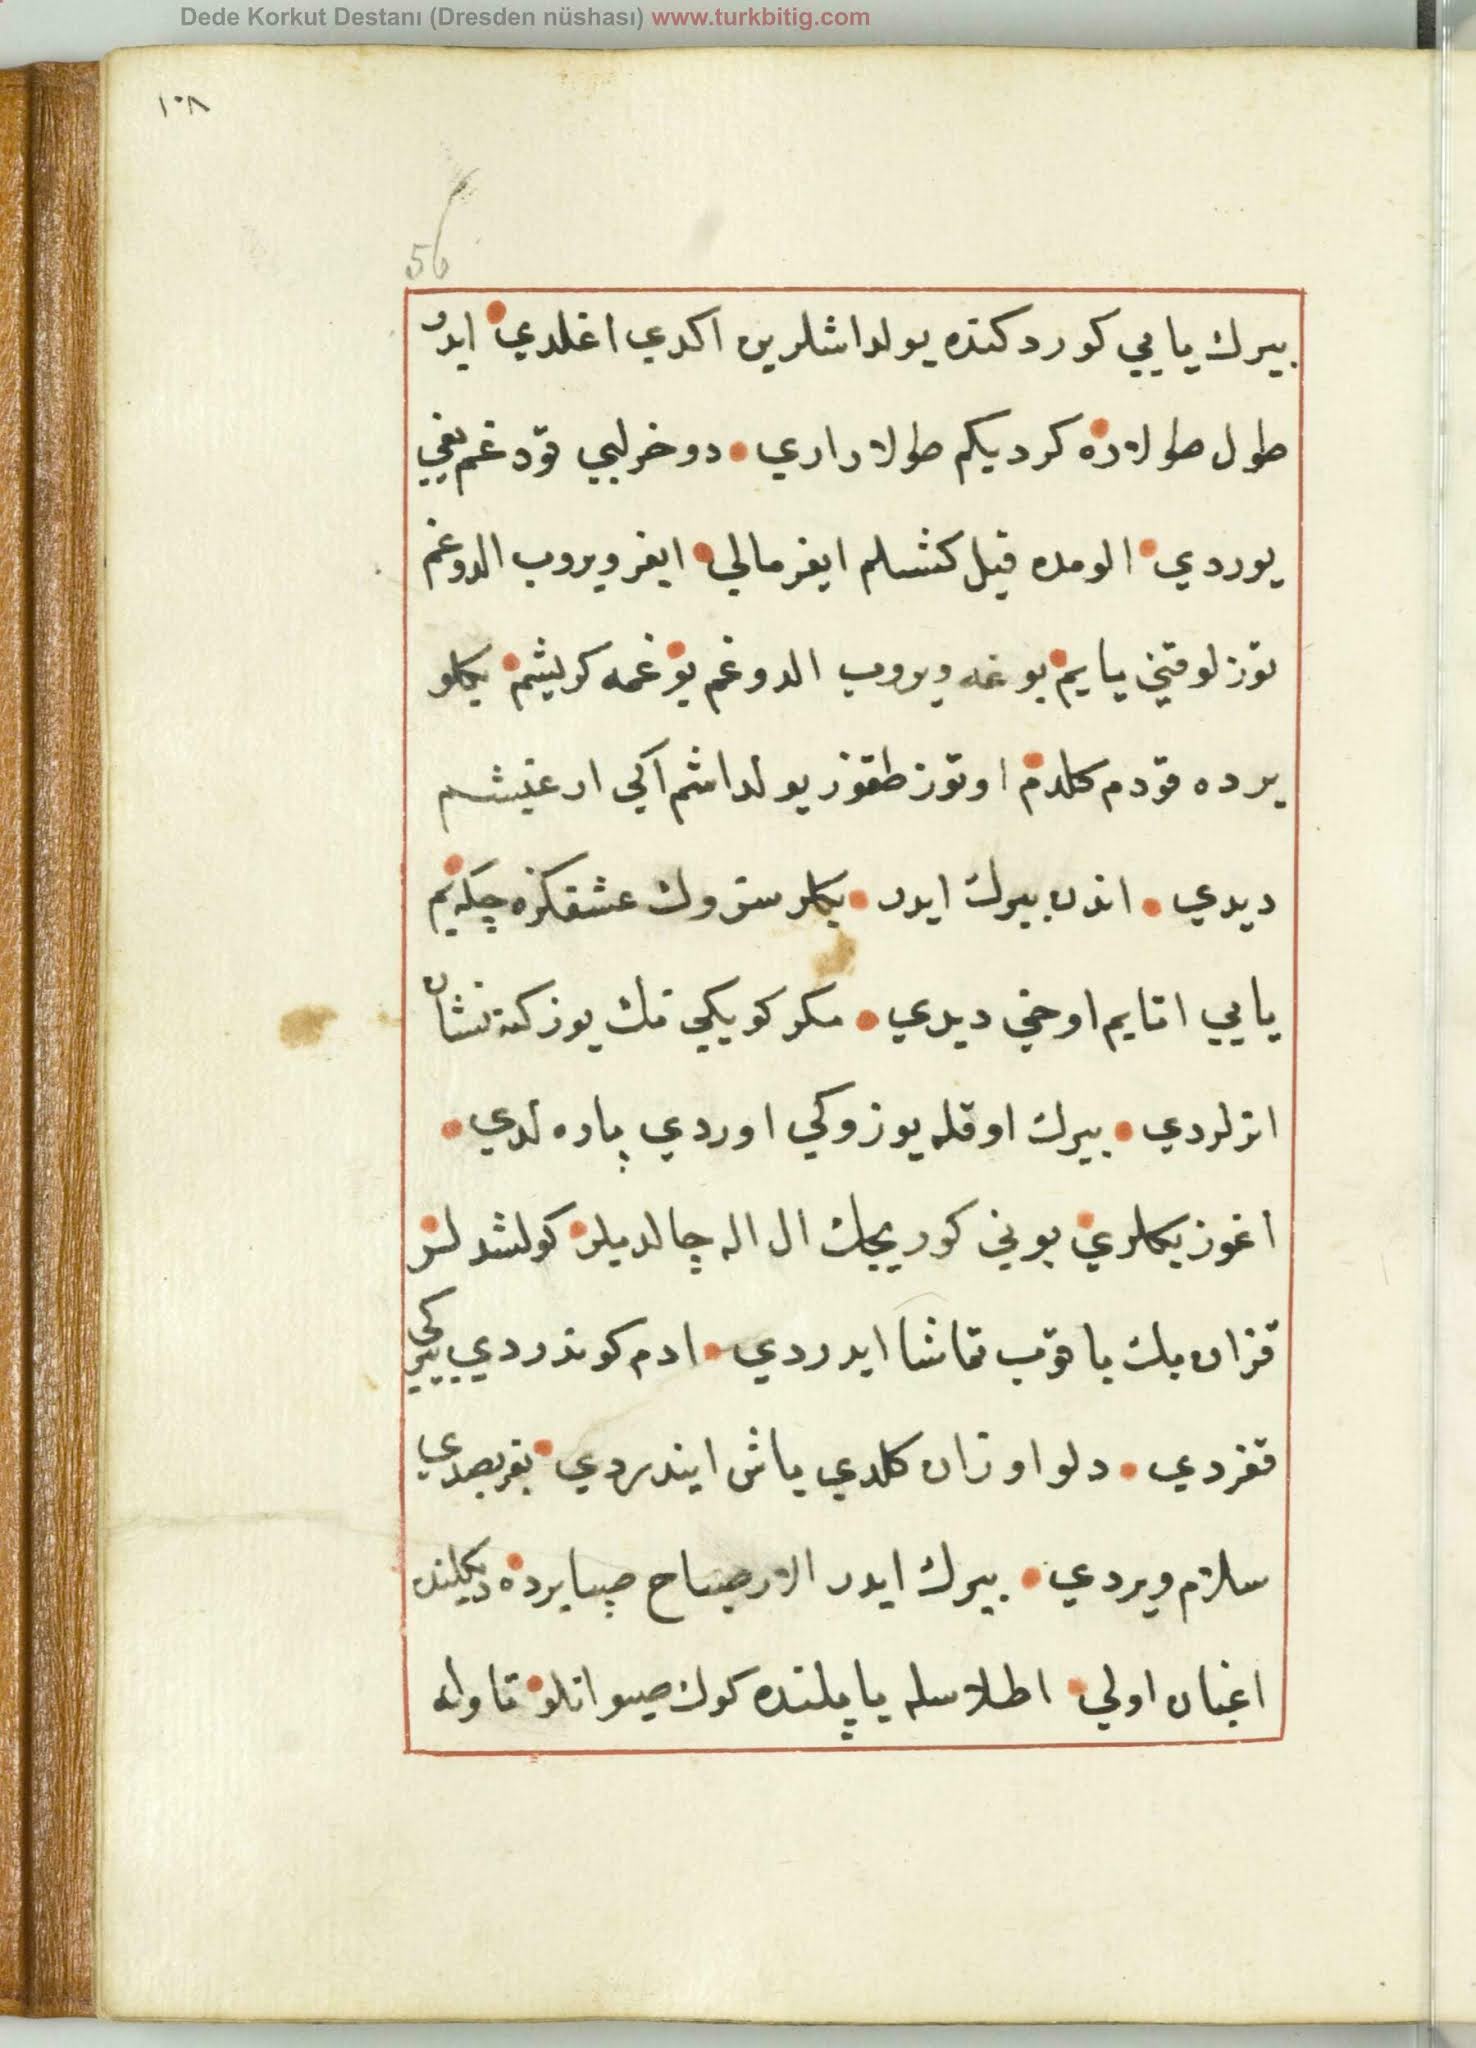 Dede Korkut Destanı (Dresden nüshası) www.turkbitig.com
١٠٨
56
بیرك یایی كوردكنده یولداشلرین اكدي اغلدي ایدر
طول طولارده كردیكم طولاراري دوخرلبي قودغم یغي
یوردي الومده قیل كشلم ایغر مالي ایغر ویروب الدوغم
توز لوقتي یایم بوغه ویروب الدوغم بوغمه كریشم بكلو
یرده قودم كلدم اوتوز طقوز یولداشم اكي ارغیشم
دیدي اندن بیرك ایدر بكلر سنروك عشقكزه چكه یم
یایي اتایم اوخي دیدي مكر كویكي نك یوزكنه نشان
اترلردي بیرك اوقله یوزوكي اوردي پاره لدي
اغوز بكلري بوني كوریجك ال اله چالدیلر كولشدلر
قزان بك باقوب تماشا ایدردي ادم كوندردي بیركي
قغردي دلو اوزان كلدي باش ایندردي بغر بصدي
سلام ویردي بیرك ایدر الار صباح صپا یرده دیكلنده
اغبان اولي اطلاسله یاپلنده كوك صیوانلو تاوله